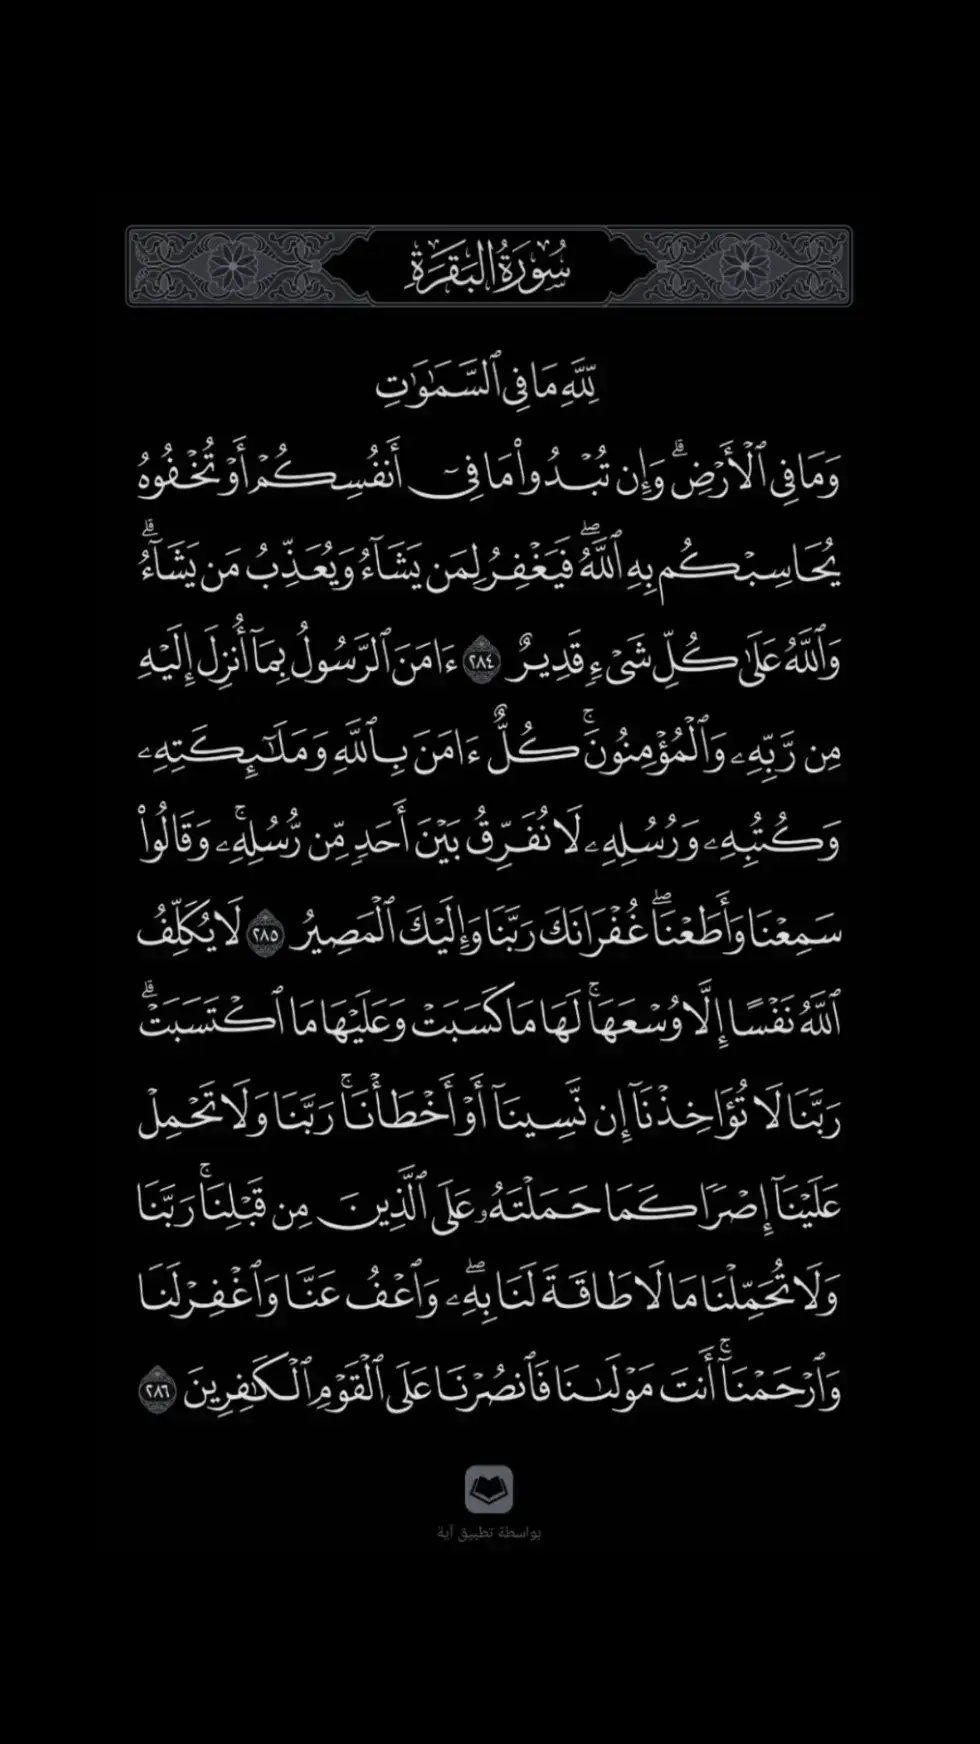 سُورَةُ البَقَرَةِ
لِّلَّهِ مَا فِي ٱلسَّمَٰوَٰتِ
وَمَا فِي ٱلْأَرْضِۗ وَإِن تُبْدُوا۟ مَا فِىٓ أَنفُسِكُمْ أَوْ تُخْفُوهُ
يُحَاسِبْكُم بِهِ ٱللَّهُۖ فَيَغْفِرُ لِمَن يَشَآءُ وَيُعَذِّبُ مَن يَشَآءُۗ
وَٱللَّهُ عَلَىٰ كُلِّ شَىْءٍ قَدِيرٌ ٢٨٤ ءَامَنَ ٱلرَّسُولُ بِمَآ أُنزِلَ إِلَيْهِ
مِن رَّبِّهِۦ وَٱلْمُؤْمِنُونَۚ كُلٌّ ءَامَنَ بِٱللَّهِ وَمَلَٰٓئِكَتِهِۦ
وَكُتُبِهِۦ وَرُسُلِهِۦ لَا نُفَرِّقُ بَيْنَ أَحَدٍ مِّن رُّسُلِهِۦۚ وَقَالُوا۟
سَمِعْنَا وَأَطَعْنَاۖ غُفْرَانَكَ رَبَّنَا وَإِلَيْكَ ٱلْمَصِيرُ ٢٨٥ لَا يُكَلِّفُ
ٱللَّهُ نَفْسًا إِلَّا وُسْعَهَاۚ لَهَا مَا كَسَبَتْ وَعَلَيْهَا مَا ٱكْتَسَبَتْۗ
رَبَّنَا لَا تُؤَاخِذْنَآ إِن نَّسِينَآ أَوْ أَخْطَأْنَاۚ رَبَّنَا وَلَا تَحْمِلْ
عَلَيْنَآ إِصْرًا كَمَا حَمَلْتَهُۥ عَلَى ٱلَّذِينَ مِن قَبْلِنَاۚ رَبَّنَا
وَلَا تُحَمِّلْنَا مَا لَا طَاقَةَ لَنَا بِهِۦۖ وَٱعْفُ عَنَّا وَٱغْفِرْ لَنَا
وَٱرْحَمْنَآۚ أَنتَ مَوْلَىٰنَا فَٱنصُرْنَا عَلَى ٱلْقَوْمِ ٱلْكَٰفِرِينَ ٢٨٦
بواسطة تطبيق آية